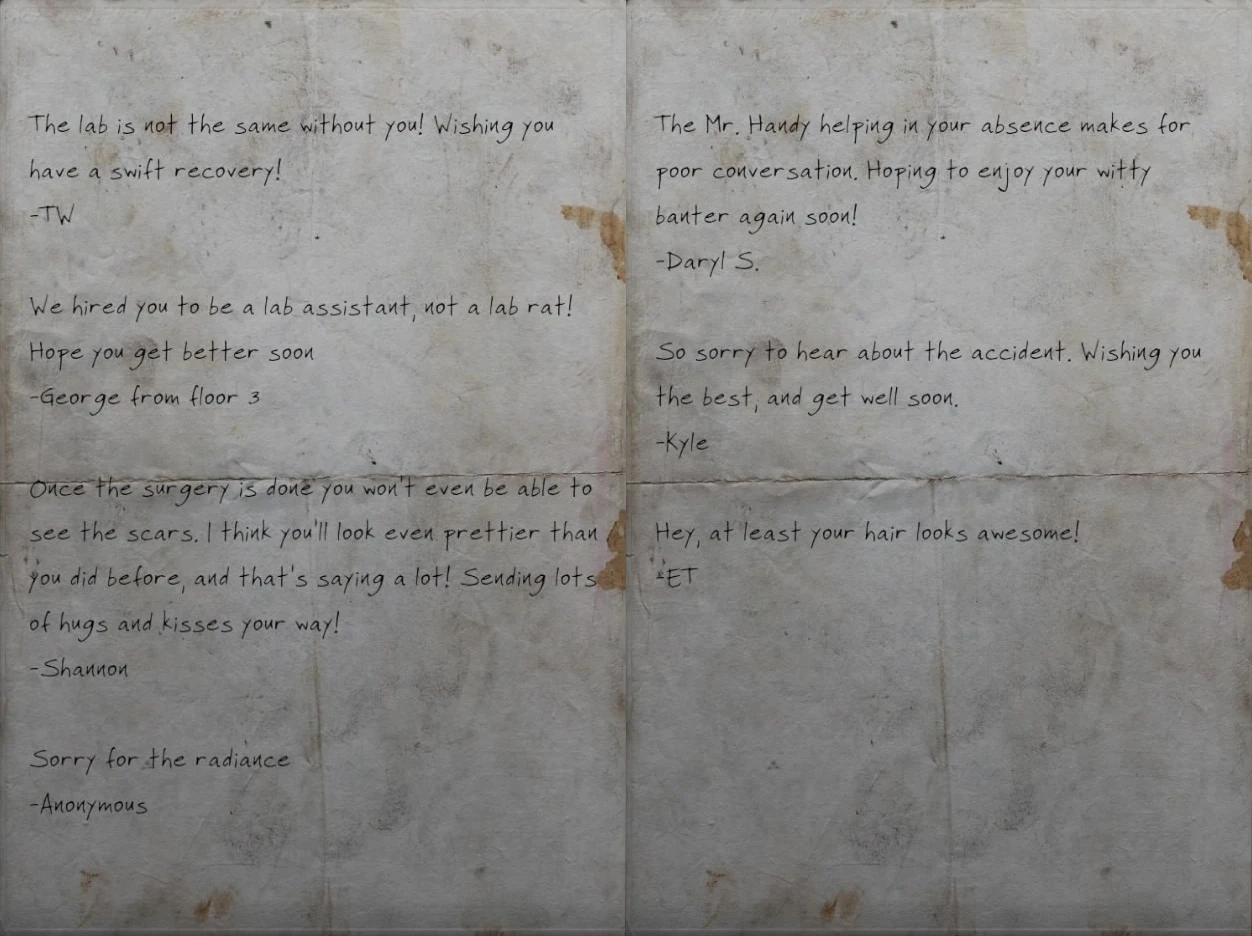 The lab is not the same without you! Wishing you
have a swift recovery!
-TW
We hired you to be a lab assistant, not a lab rat!
Hope you get better soon
-George from floor 3
Once the surgery is done you won't even be able to
see the scars. I think you'll look even prettier than
you did before, and that's saying a lot! Sending lots
of hugs and kisses your way!
-Shannon
Sorry for the radiance
-Anonymous
The Mr. Handy helping in your absence makes for
poor conversation. Hoping to enjoy your witty
banter again soon!
-Daryl S.
So sorry to hear about the accident. Wishing you
the best, and get well soon.
-Kyle
Hey, at least your hair looks awesome!
-ET